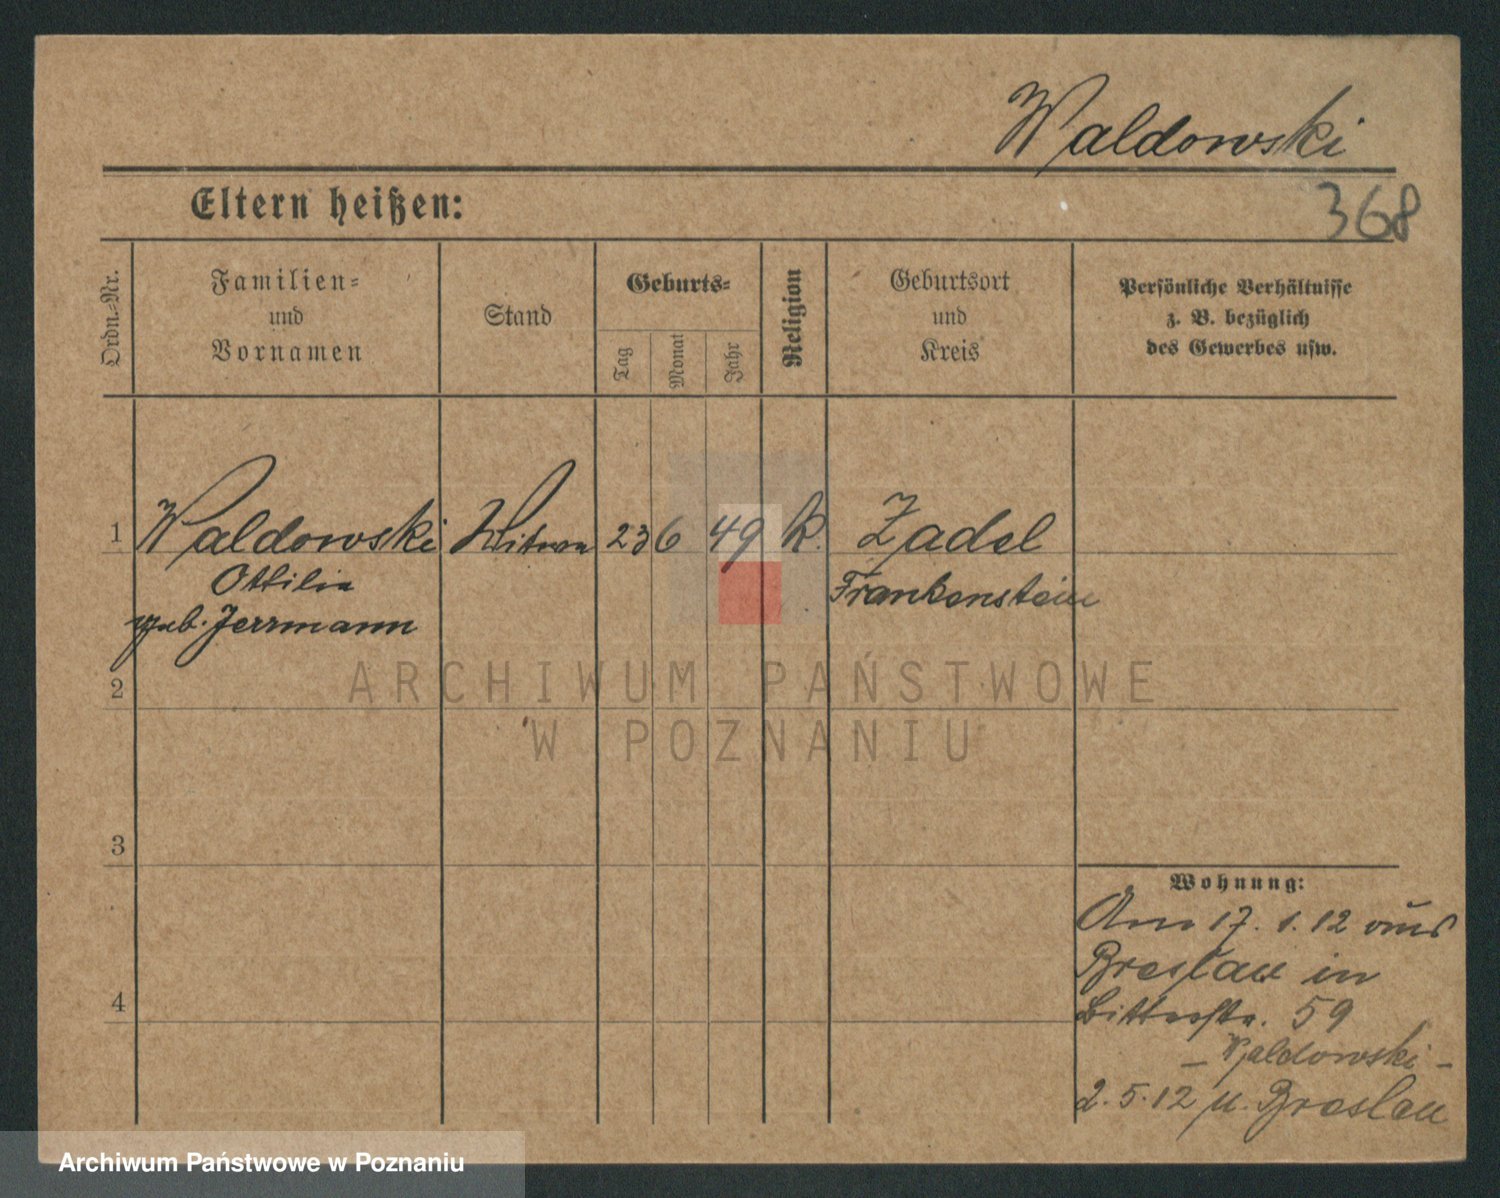 Waldowski
Eltern heißen:
368
Ordn.-Nr.
Familien-
und
Vornamen
Stand
Geburts-
Tag
Monat
Jahr
Religion
Geburtsort
und
Kreis
Persönliche Verhältnisse
z. B. bezüglich
des Gewerbes usw.
1 Waldowski Witwe 23 6 49 k. Zadel
Ottilie Frankenstein
geb. Jerrmann
2
3
4
ARCHIWUM PAŃSTWOWE
W POZNANIU
Wohnung:
Am 17. 1. 12 aus
Breslau in
Bitterstr. 59
– Waldowski –
2. 5. 12 n. Breslau
Archiwum Państwowe w Poznaniu